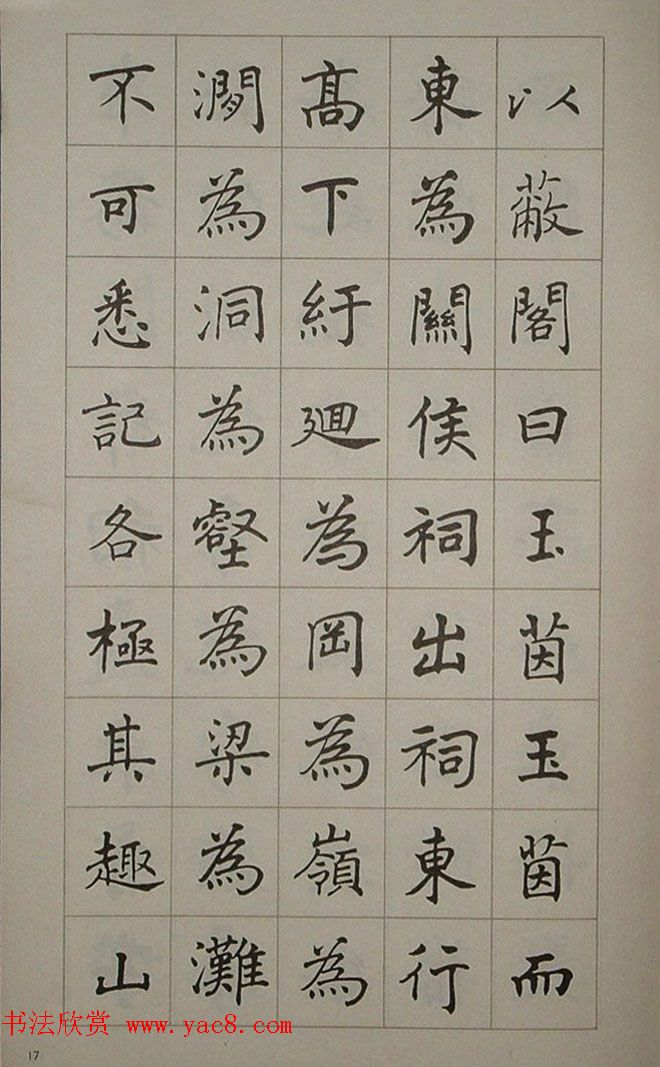 以蔽閣曰玉茵玉茵而
東為關侯祠出祠東行
高下紆廻為岡為嶺為
澗為洞為壑為梁為灘
不可悉記各極其趣山
书法欣赏 www.yac8.com
17